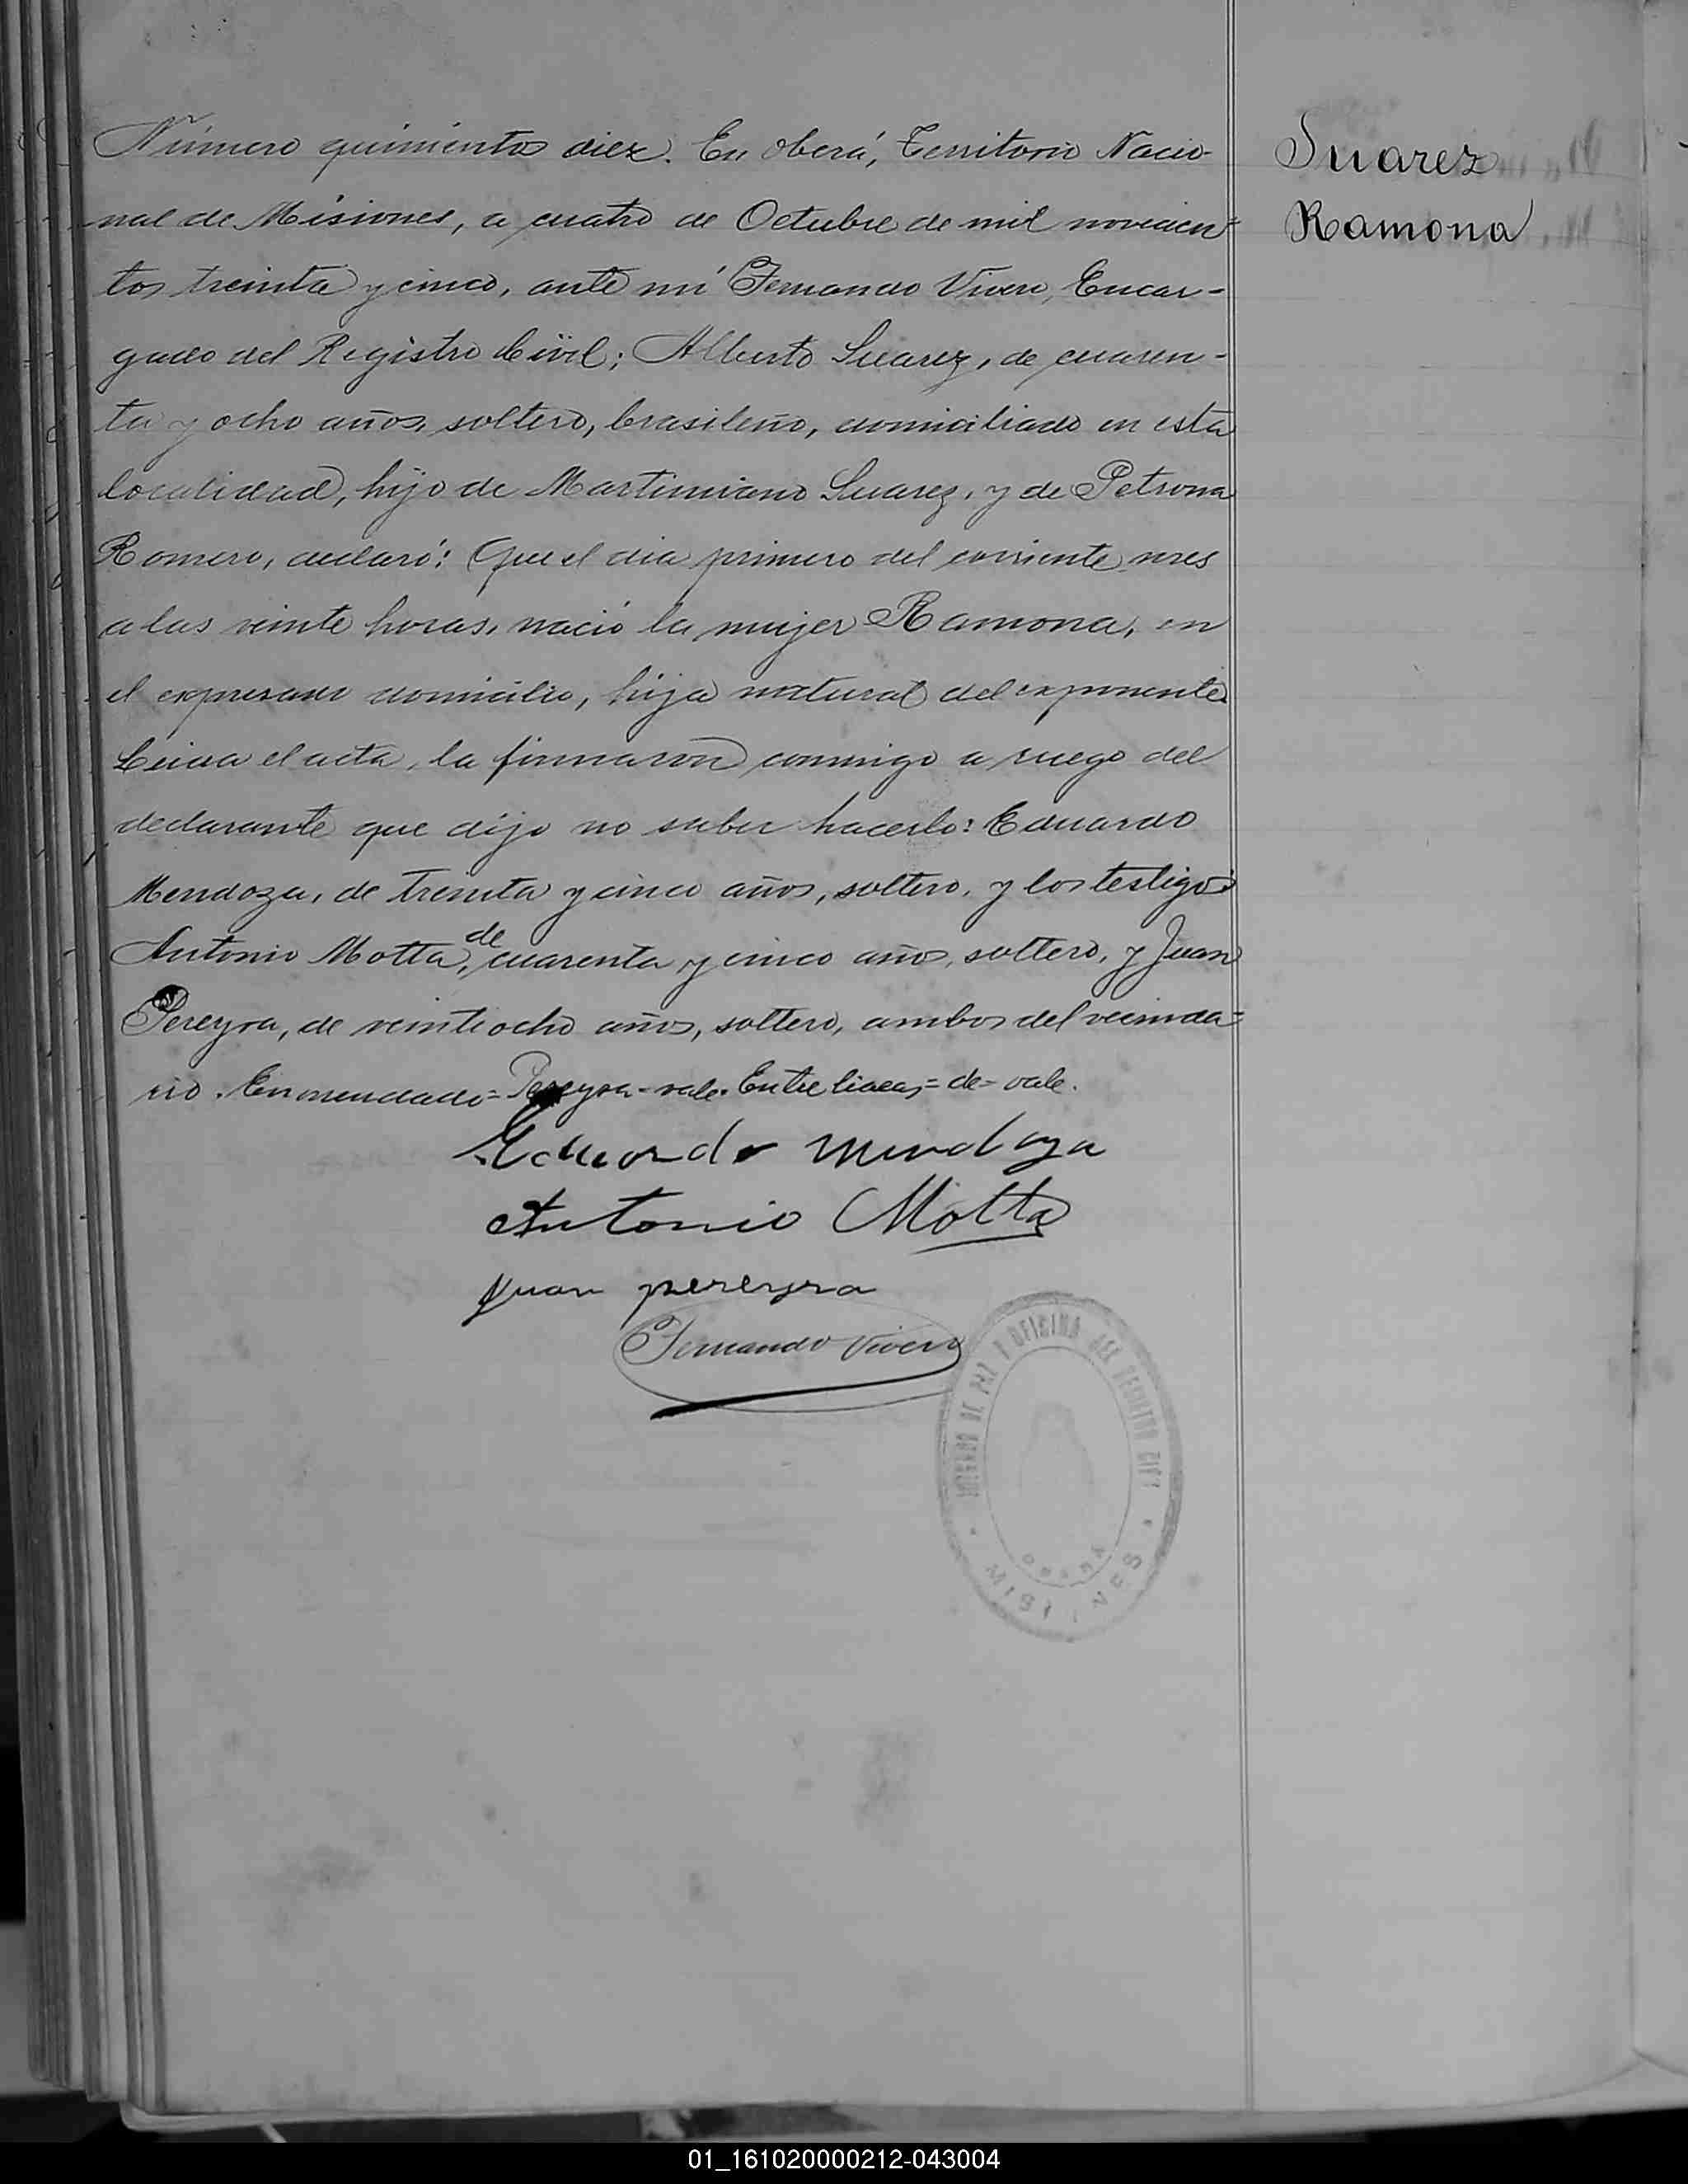 Número quinientos diez. En Oberá, Territorio Nacio-
nal de Misiones, a cuatro de Octubre de mil novecien-
tos treinta y cinco, ante mí Fernando Vivero, Encar-
gado del Registro Civil; Alberto Suarez, de cuaren-
ta y ocho años, soltero, brasileño, domiciliado en esta
localidad, hijo de Martimiano Suarez, y de Petrona
Romero, declaró: Que el dia primero del corriente mes
a las veinte horas, nació la mujer Ramona, en
el expresado domicilio, hija natural del exponente.
Leida el acta, la firmaron conmigo a ruego del
declarante que dijo no saber hacerlo: Eduardo
Mendoza, de treinta y cinco años, soltero, y los testigos
Antonio Motta, de cuarenta y cinco años, soltero, y Juan
Pereyra, de veintiocho años, soltero, ambos del vecinda-
rio. Enmendado=Pereyra-vale. Entre lineas=de=vale.
Eduardo Mendoza
Antonio Motta
Juan pereyra
Fernando Vivero
JUZGADO DE PAZ Y OFICINA DEL REGISTRO CIVIL
OBERÁ
MISIONES
Suarez
Ramona
01_161020000212-043004